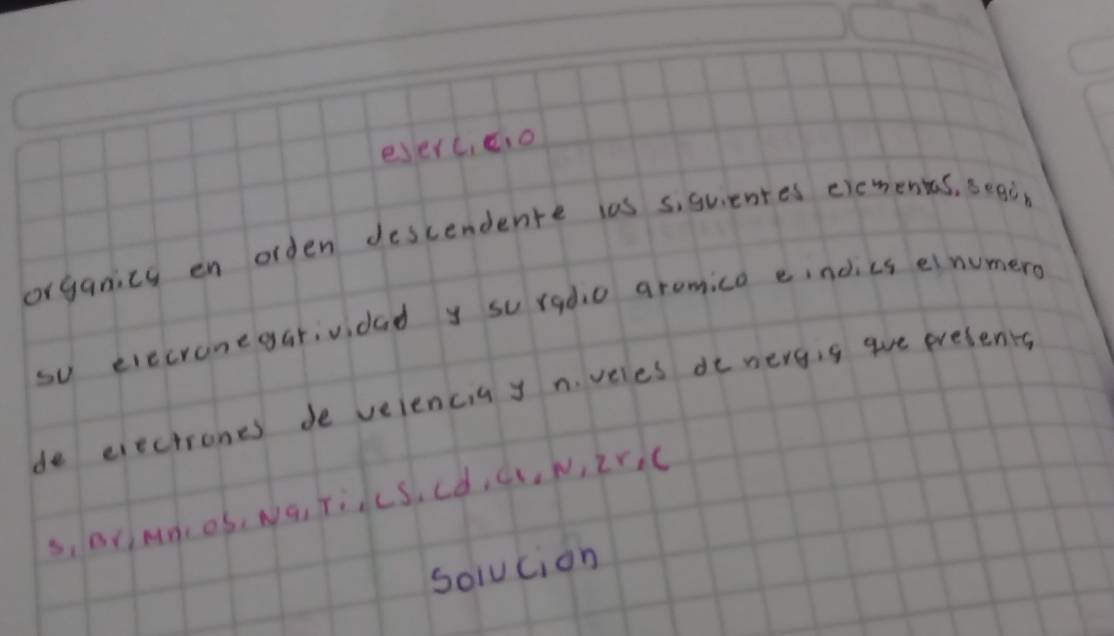 esercicio
organicy en orden descendente las siguientes elementos. según
su elecronegatividad y su radio atomico e indica el numero
de electrones de velencia y niveles de nergia que presenta
S, Br, Mn, Os, Na, Ti, Cs, Cd, Cl, N, Zr, C
Solucion